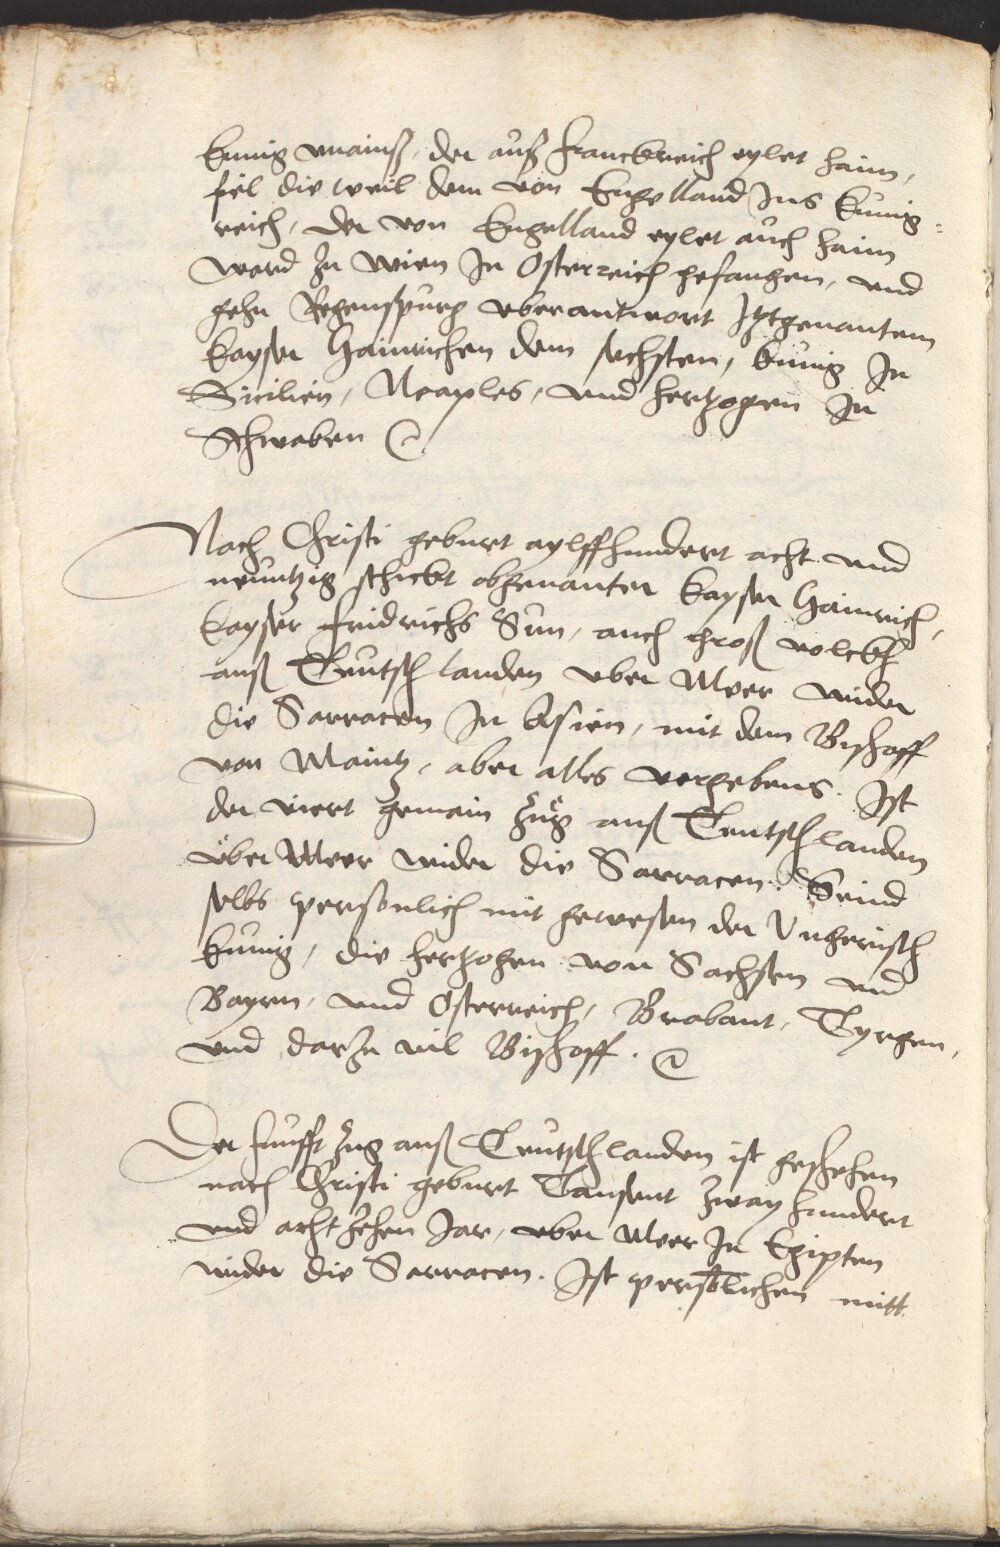 kunig unainß, der auß Franckreich eylet haim,
fiel die weil dem von Engelland Ins kunig=
reich, der von Engelland eylet auch haim
ward zu Wien In Osterreich gefangen, und
gehn Regenspurg uberantwort Iztgenantem
kayser Hainrichen dem sechsten, kunig In
Sicilien, Neaples, und hertzogen In
Schwaben

Nach Christi geburt aylffhundert acht und
neuntzig schickt obgenanter kayser Hainrich,
kayser Fridrichs Sun, auch groß volckh
auß Teutschlanden uber Meer wider
die Sarracen In Asien, mit dem Bischoff
von Maintz, aber alles vergebens. Ist
der viert gemain zug auß Teutschlanden
uber Meer wider die Sarracen. Seind
selbs persönlich mit gewesen der Ungerisch
kunig, die hertzogen von Sachsen und
Bayrn, und Osterreich, Brabant, Tyrgen,
und darzu vil Bischoff.

Der funfft zug auß Teutschlanden ist geschehen
nach Christi geburt Tausent zway hundert
und achtzehen Jar, uber Meer In Egipten
wider die Sarracen. Ist persölichen mitt